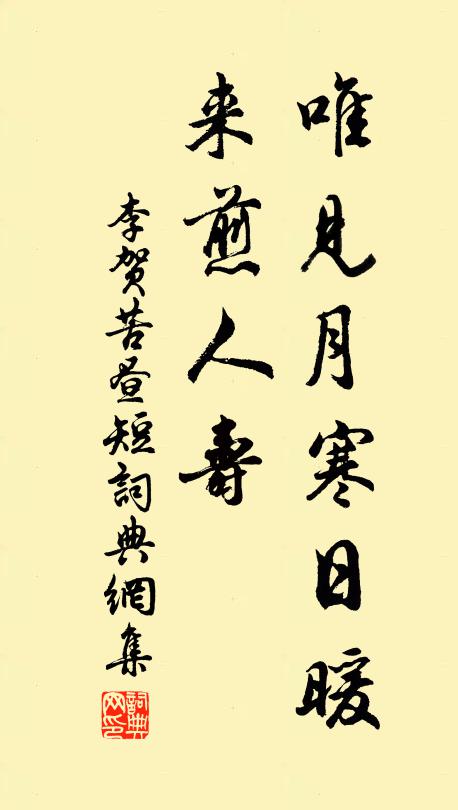 唯見月寒日暖
来煎人壽
李贺苦昼短詞典網集
詞典網印